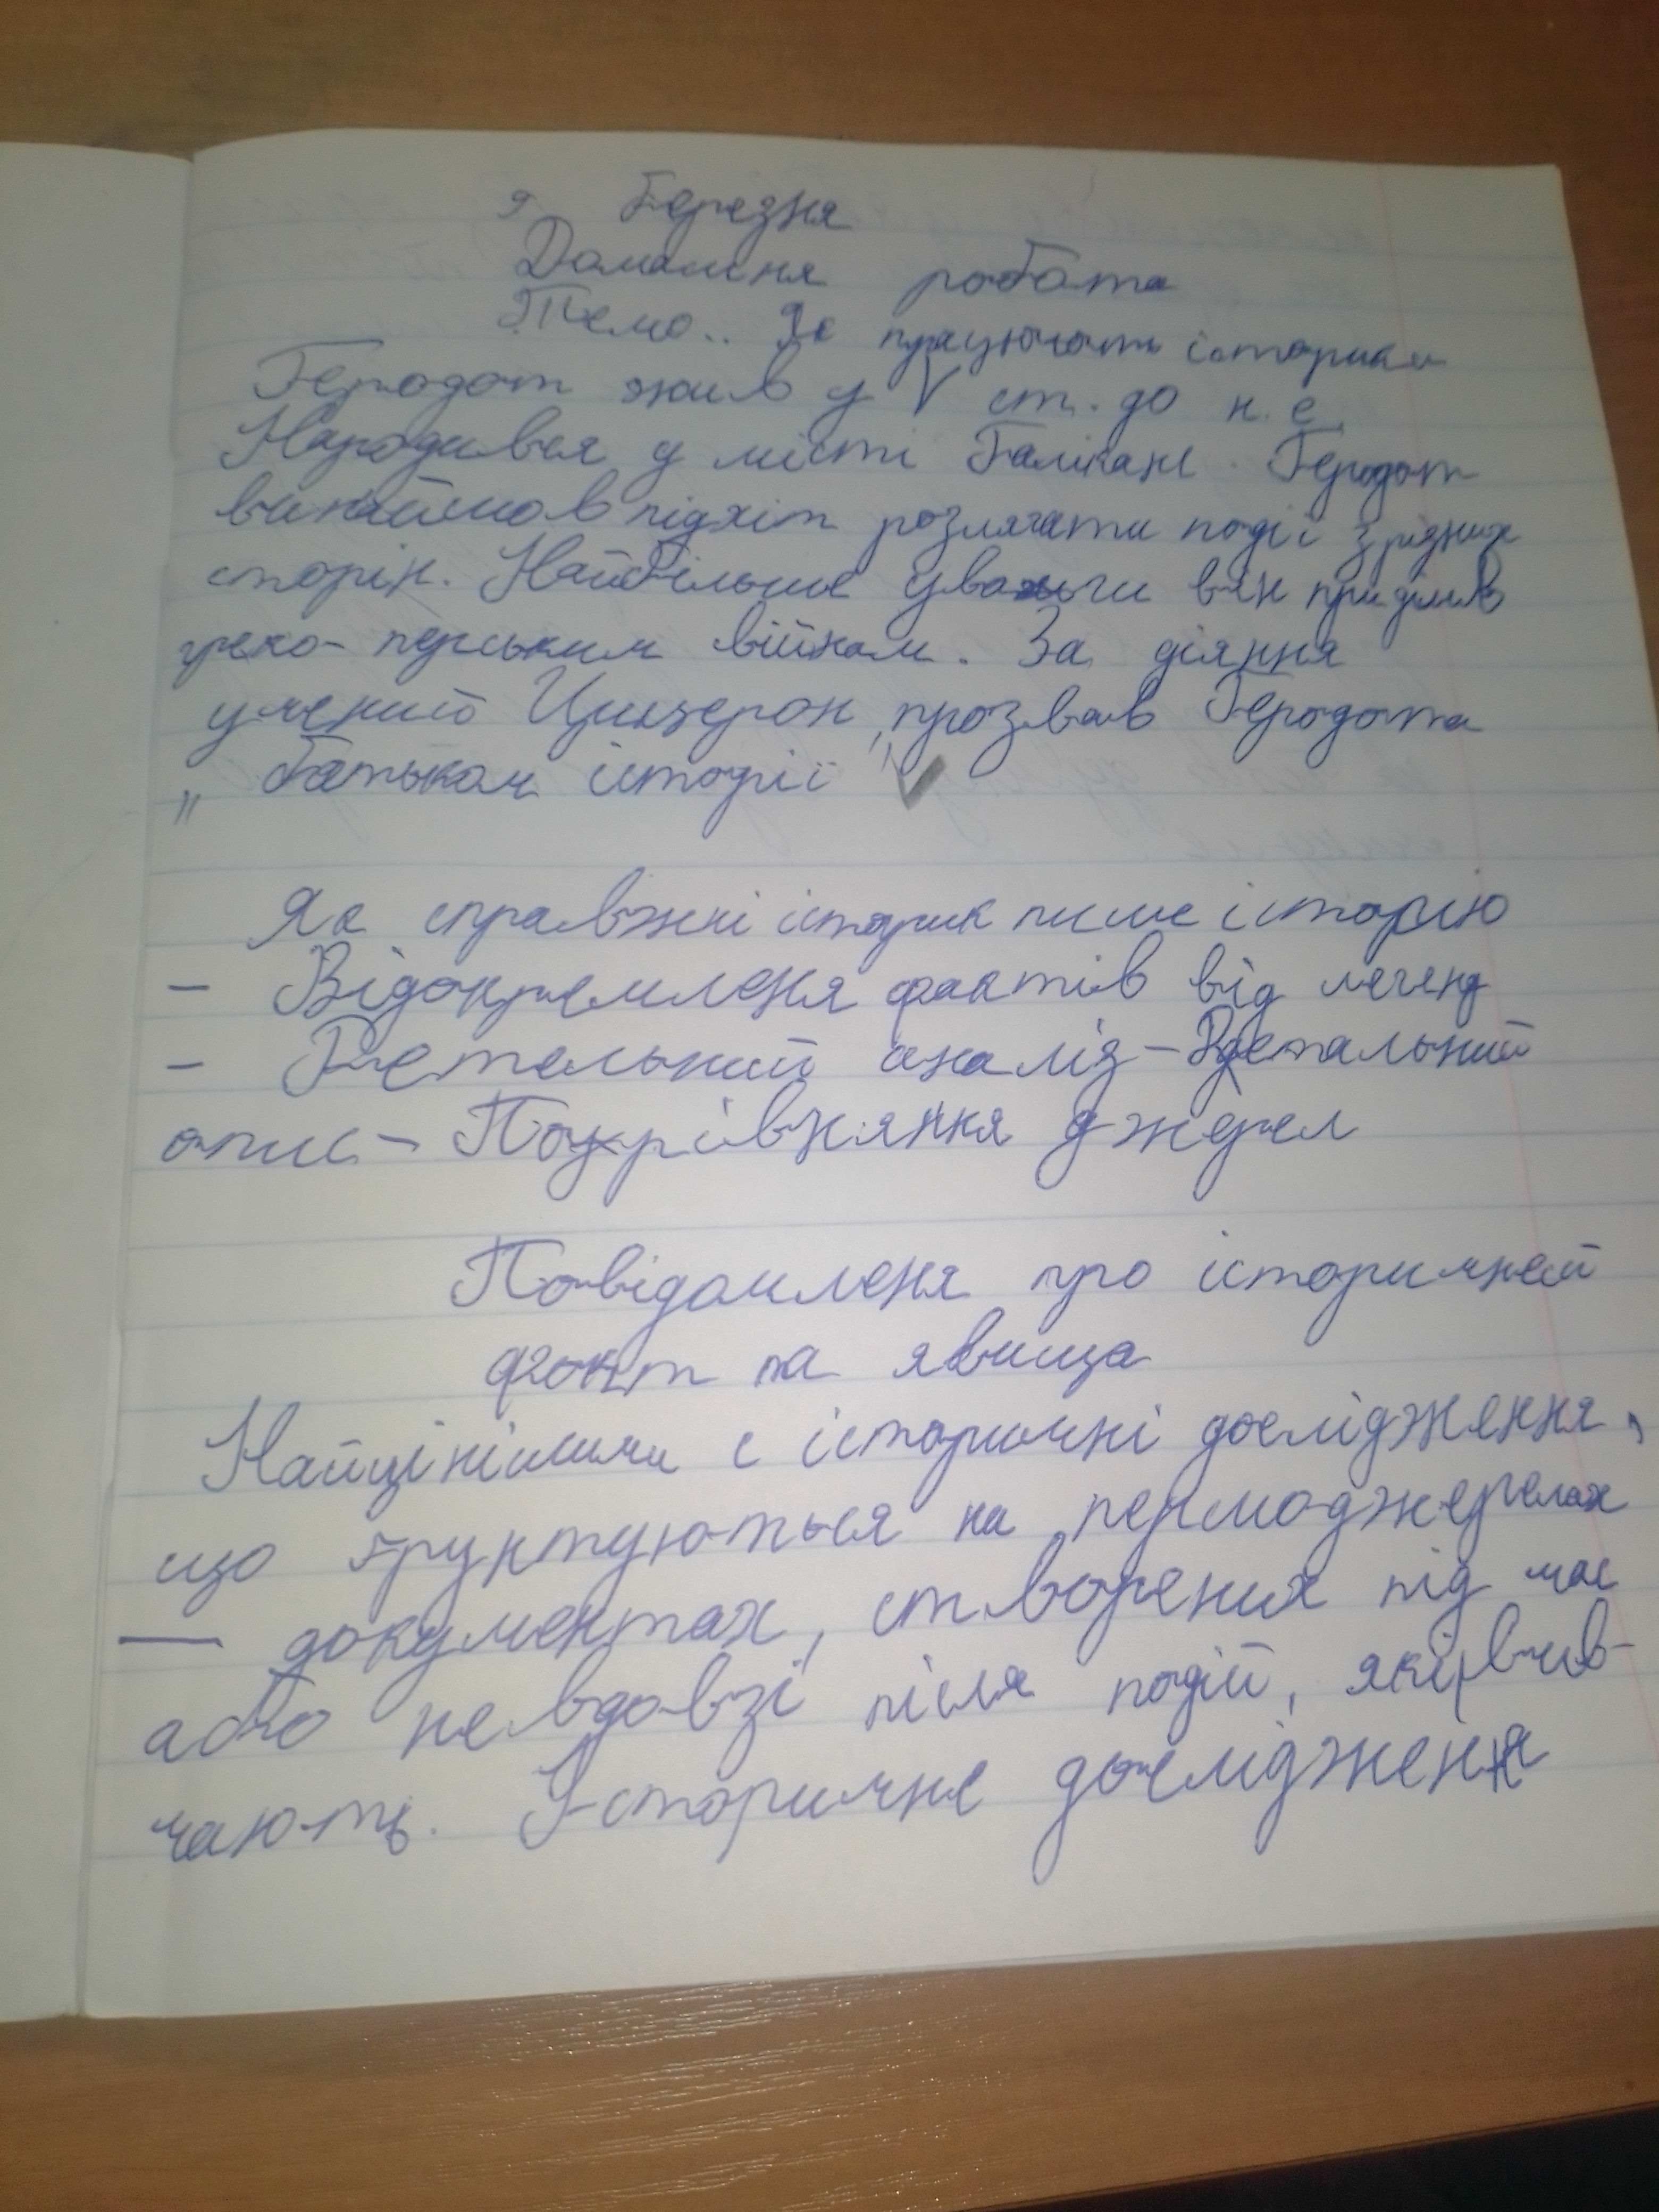 9 Березня
Домашня робота
Тема.. Як працюють історики
Геродот жив у V ст. до н. е
Народився у місті Галікане. Геродот
винайшов підхіт розлягати події з різних
сторін. Найбільше уваги він приділив
греко-перським війнам. За діяння
учений Цицерон прозвав Геродота
„ батьком історії "
Як справжні історик пише історію
- Відокремленя фактів від легенд
- Ретельний аналіз - Детальний
опис - Порівняння джерел
Повідомленя про історичней
факт та явища
Найціннішими є історичні дослідження,
що ґрунтуються на першоджерелах
— документах, створених під час
або невдовзі після подій, які вив-
чають. Історичне дослідженя